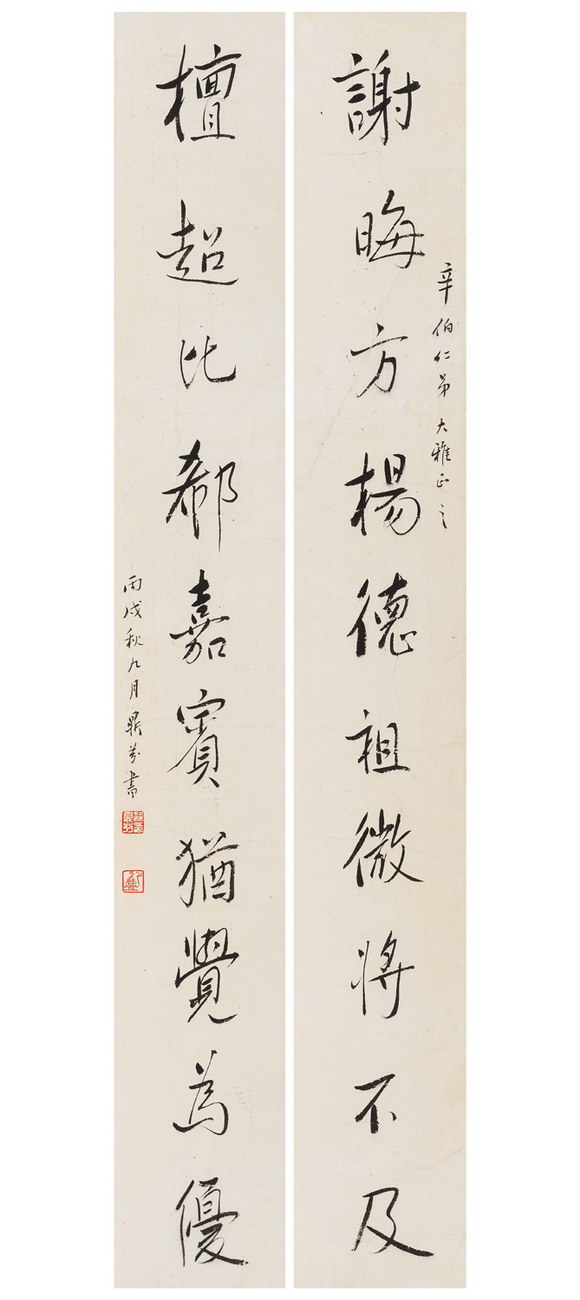 辛伯仁弟大雅正之
謝晦方楊德祖微將不及
檀超比郗嘉賓猶覺為優
丙戌秋九月鼎芬書